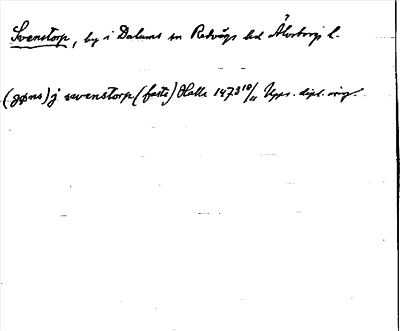 Svenstorp, by i Dalums sn Redvägs hd Älvsborgs l.
(gøns) j swenstorp (faste) Halle 1473 10/11 Upps. dipl. orig.